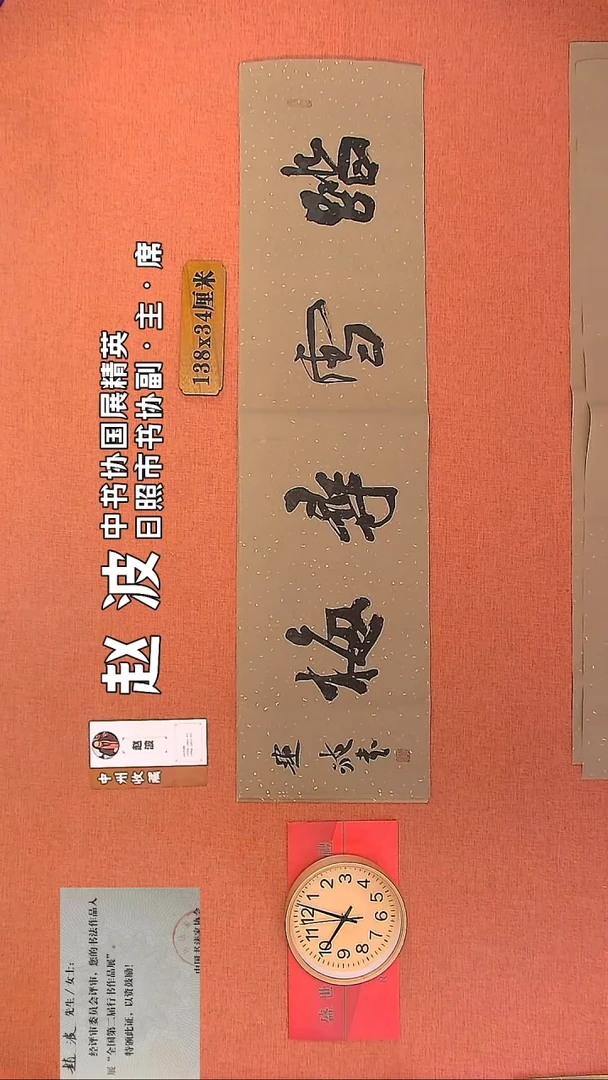 赵波 中书协国展精英
日照市书协副·主·席
138x34厘米
踏雪尋梅
趙波書
赵波
中州收藏
趙波 先生/女士：
经评审委员会评审，您的书法作品入
展“全国第二届行书作品展”。
特颁此证，以资鼓励！
中国书法家协会
盛世
12
1
2
3
4
5
6
7
8
9
10
11